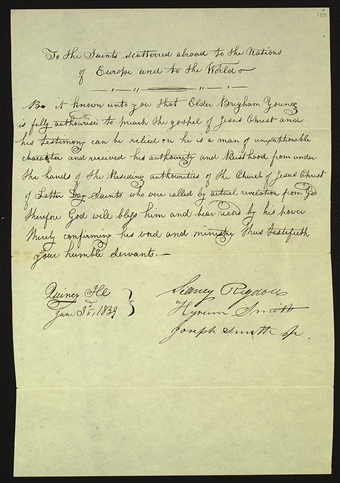 155
To the Saints scatterred abroad to the Nations
of Europe and to the World
Be it known unto you that Elder Brigham Young
is fully authourised to preach the gospel of Jesus Christ and
his testimony can be relied on he is a man of unexeptionable
character and received his authourity and Priesthood from under
the hands of the Preciding authourities of the Church of Jesus Christ
of Latter Day Saints who were called by actual revelation from God
therefore God will bless him and bear record by his power
thereby confirming his word and ministry Thus testifieth
your humble servants.—
Quincy Ill
June 3d, 1839
Sidney Rigdon
Hyrum Smith
Joseph Smith Jr.